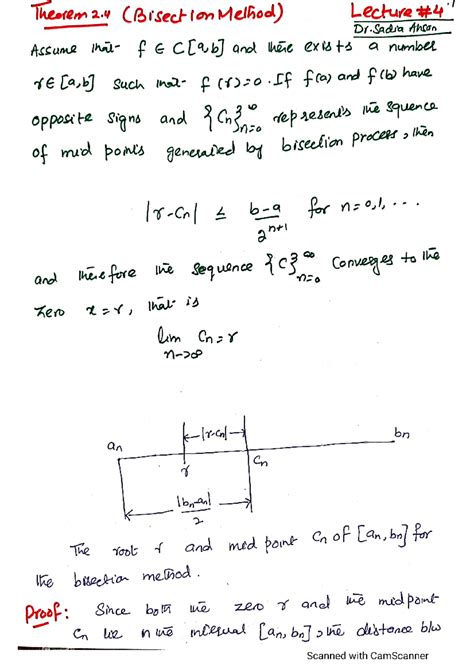 Theorem 2.4 (Bisection Method) Lecture #4
Dr. Sadia Ahsan
Assume that f ∈ C[a,b] and there exists a number
r ∈ [a,b] such that f(r)=0. If f(a) and f(b) have
opposite signs and {Cn}∞n=0 represents the squence
of mid points generated by bisection process, then
|r-Cn| ≤ b-a/2^n+1 for n=0,1,...
and therefore the sequence {C}∞n=0 converges to the
zero x=r, that is
lim Cn=r
n→∞
|r-cn|
an r Cn bn
|bn-an|/2
The root r and mid point Cn of [an,bn] for
the bisection method.
Proof: Since both the zero r and the midpoint
Cn lie in the interval [an,bn], the distance b/w
Scanned with CamScanner